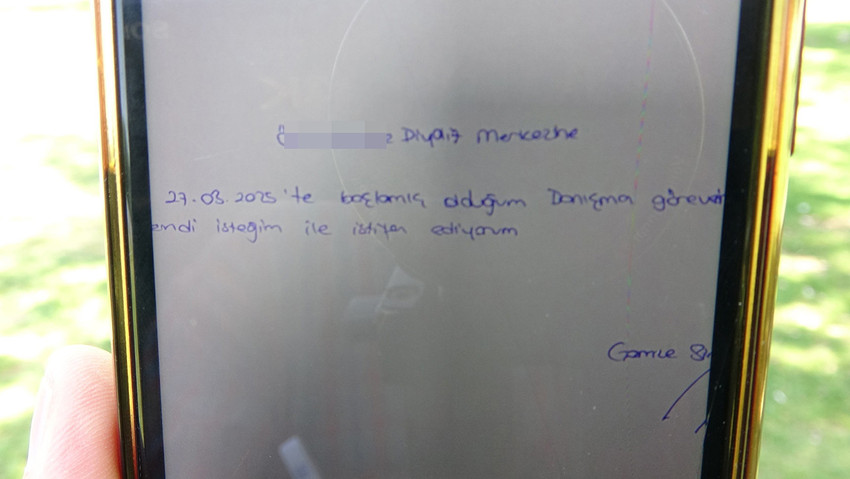 Diyaliz Merkezine
27.03.2025'te başlamış olduğum Danışma görevi
endi isteğim ile istifa ediyorum
Gamze